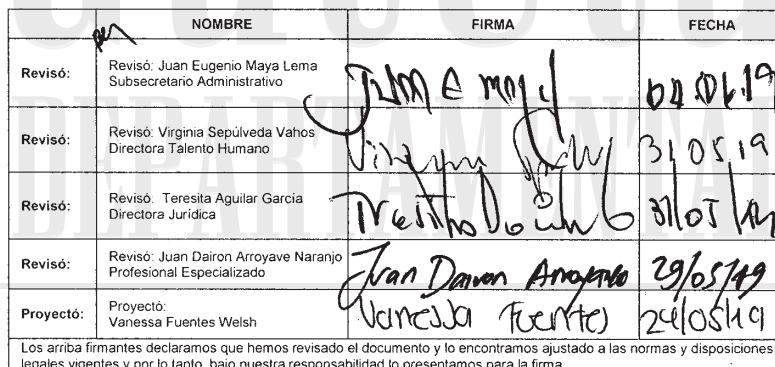 NOMBRE FIRMA FECHA
Revisó: Revisó: Juan Eugenio Maya Lema
Subsecretario Administrativo
Revisó: Revisó: Virginia Sepúlveda Vahos
Directora Talento Humano
31 05 19
Revisó: Revisó: Teresita Aguilar García
Directora Jurídica
Revisó: Revisó: Juan Dairon Arroyave Naranjo
Profesional Especializado
Juan Dairon Arroyave 29/05/19
Proyectó: Proyectó:
Vanessa Fuentes Welsh
Vanessa Fuentes 24/05/19
Los arriba firmantes declaramos que hemos revisado el documento y lo encontramos ajustado a las normas y disposiciones
legales vigentes y por lo tanto, bajo nuestra responsabilidad lo presentamos para la firma.
DEPARTAMENTAL